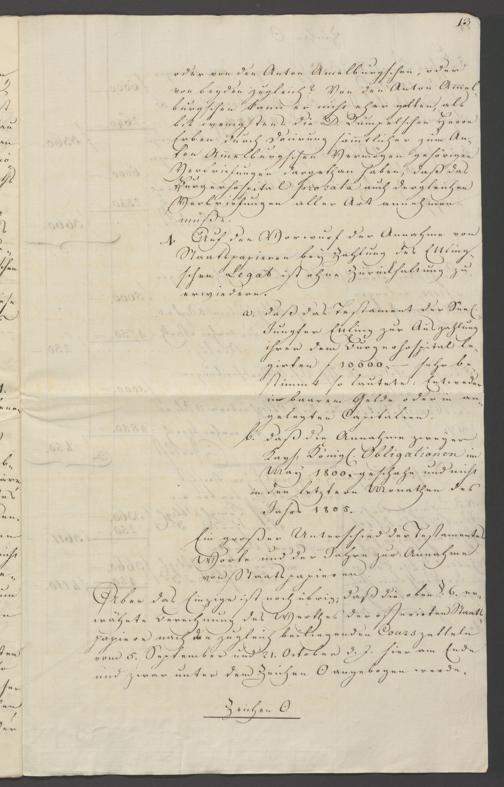 13
oder von den Anton Amelburgschen, oder
von beyden zugleich? Von den Anton Amel-
burgschen kann er nicht eher gelten, als
bis wenigstens die D. Dumpelschen Herrn
Erben durch sämtlicher zum An-
ton Amelburgschen Vermögen gehörigen
Verbriefungen dargethan haben, daß das
Bürgerhospital pro rata auch dergleichen
Verbriefungen aller Art annehmen
müße.
Auf den Vorwurf der Annahme von
Staatspapieren bey Zahlung des Ettling-
schen Legats ist ohne Zurückhaltung zu
erwiedern.
a. daß das Testament der Seel.
Jungfer Ettling zur Auszahlung
ihrer dem Bürgerhospital le-
girten f 10000.— sehr be-
stimmt so lautete: Entweder
in baarem Gelde oder in an-
gelegten Capitalien.
b. daß die Annahme zweyer
Kays. Königl. Obligationen im
May 1800. geschahe und nicht
in den letztern Monathen des
Jahrs 1805.
Ein großer Unterschied der Testaments
Worte und der Jahre zur Annahme
von Staatspapieren
Ueber das Einzige ist noch übrig, daß die oben § 6. er-
wähnte Berechnung des Werthes der offerirten Staats-
papiere nach den zugleich beiliegenden Courszetteln
vom 5. September und 21. October d. J. hier am Ende
und zwar unter dem Zeichen O angebogen werde.
Zeichen O